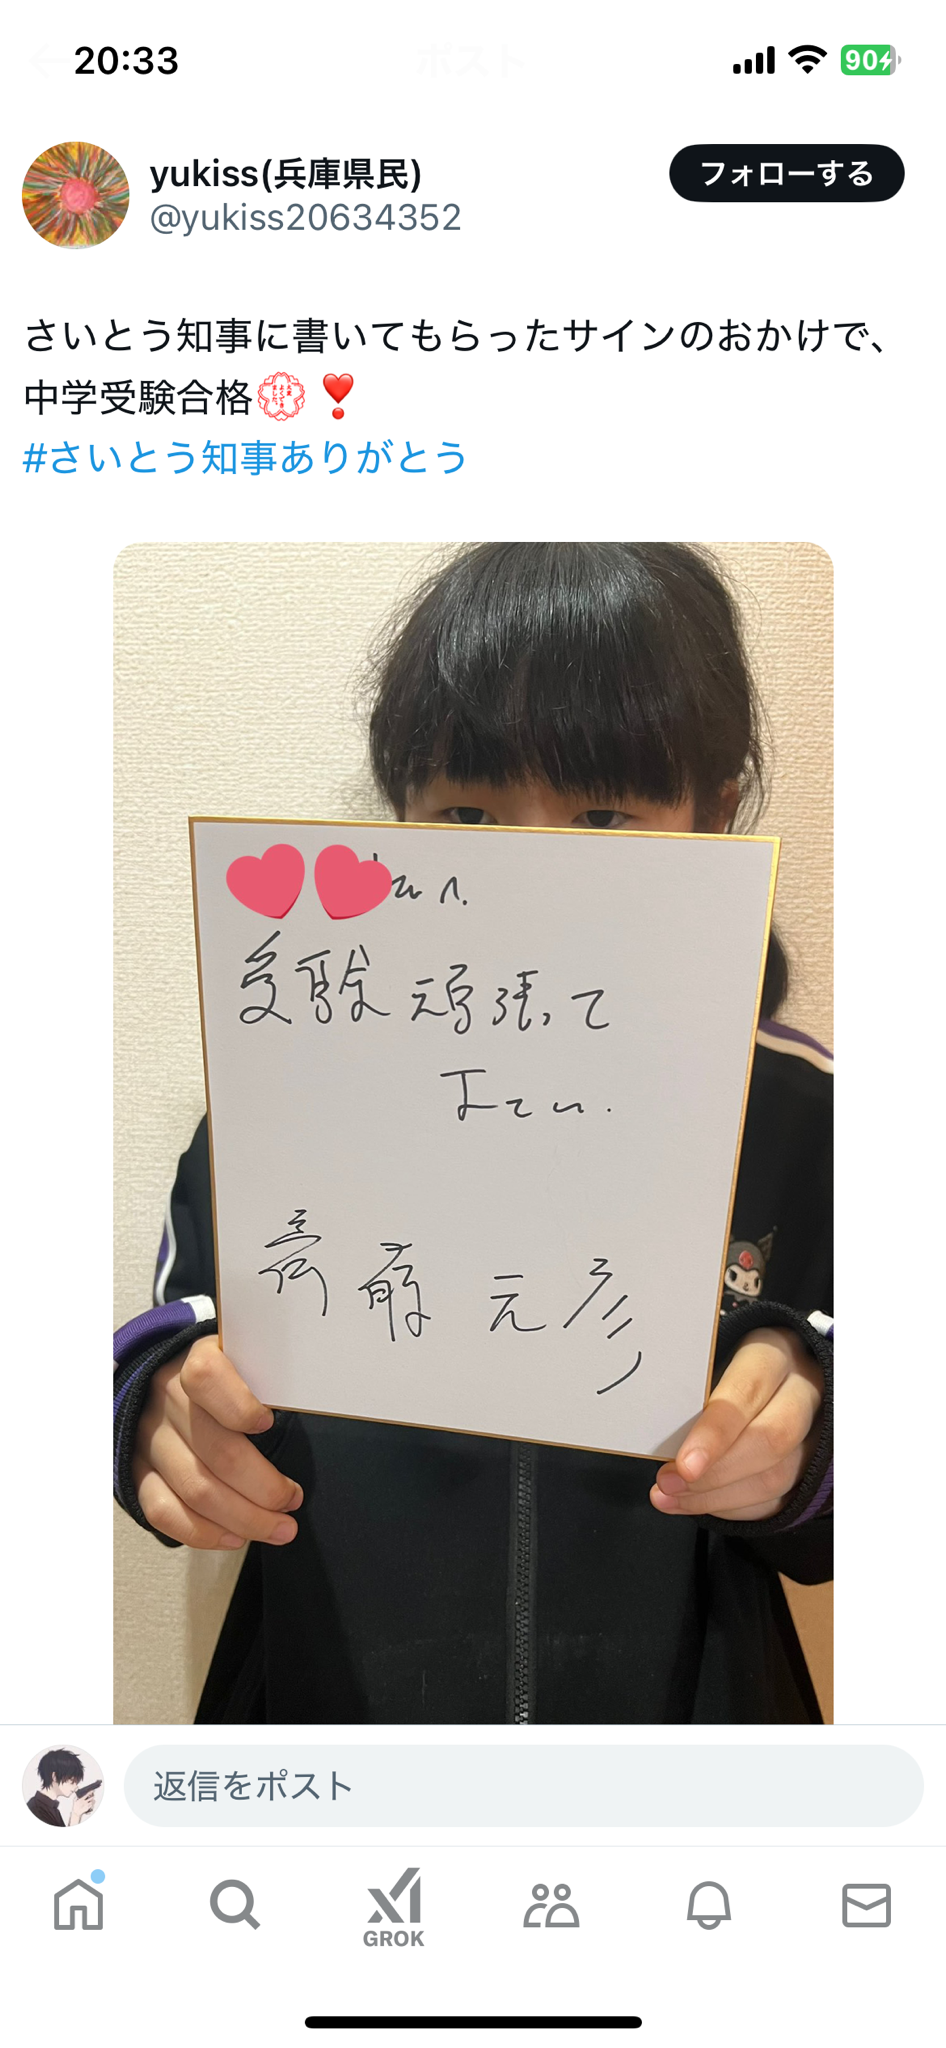 20:33
90
yukiss(兵庫県民)
@yukiss20634352
フォローする
さいとう知事に書いてもらったサインのおかけで、
中学受験合格💮❣️
#さいとう知事ありがとう
さんへ
受験頑張って
下さい.
斎藤元彦
返信をポスト
GROK